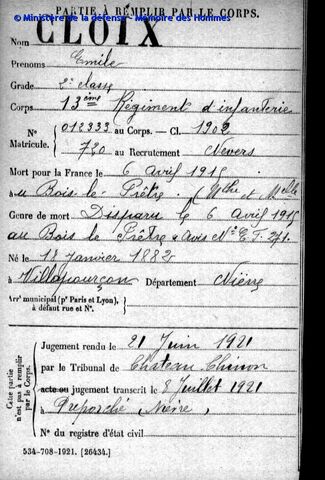 PARTIE À REMPLIR PAR LE CORPS.
© Ministère de la défense - Mémoire des Hommes
Nom CLOIX
Prénoms Emile
Grade 2e classe
Corps 13ème Régiment d'infanterie
N° 012333 au Corps. — Cl. 1902
Matricule. 720 au Recrutement Nevers
Mort pour la France le 6 Avril 1915
à u Bois-le-Prêtre (Mthe et Mlle
Genre de mort Disparu le 6 Avril 1915
au Bois le Prêtre Avis N°
Né le 18 Janvier 1882
à Villapourçon Département Nièvre
Arr' municipal (p' Paris et Lyon),
à défaut rue et N°.
Cette partie n'est pas à remplir par le Corps.
Jugement rendu le 21 Juin 1921
par le Tribunal de Chateau Chinon
acte ou jugement transcrit le 8 Juillet 1921
à Préporché Nièvre
N° du registre d'état civil
534-708-1921. [26434.]